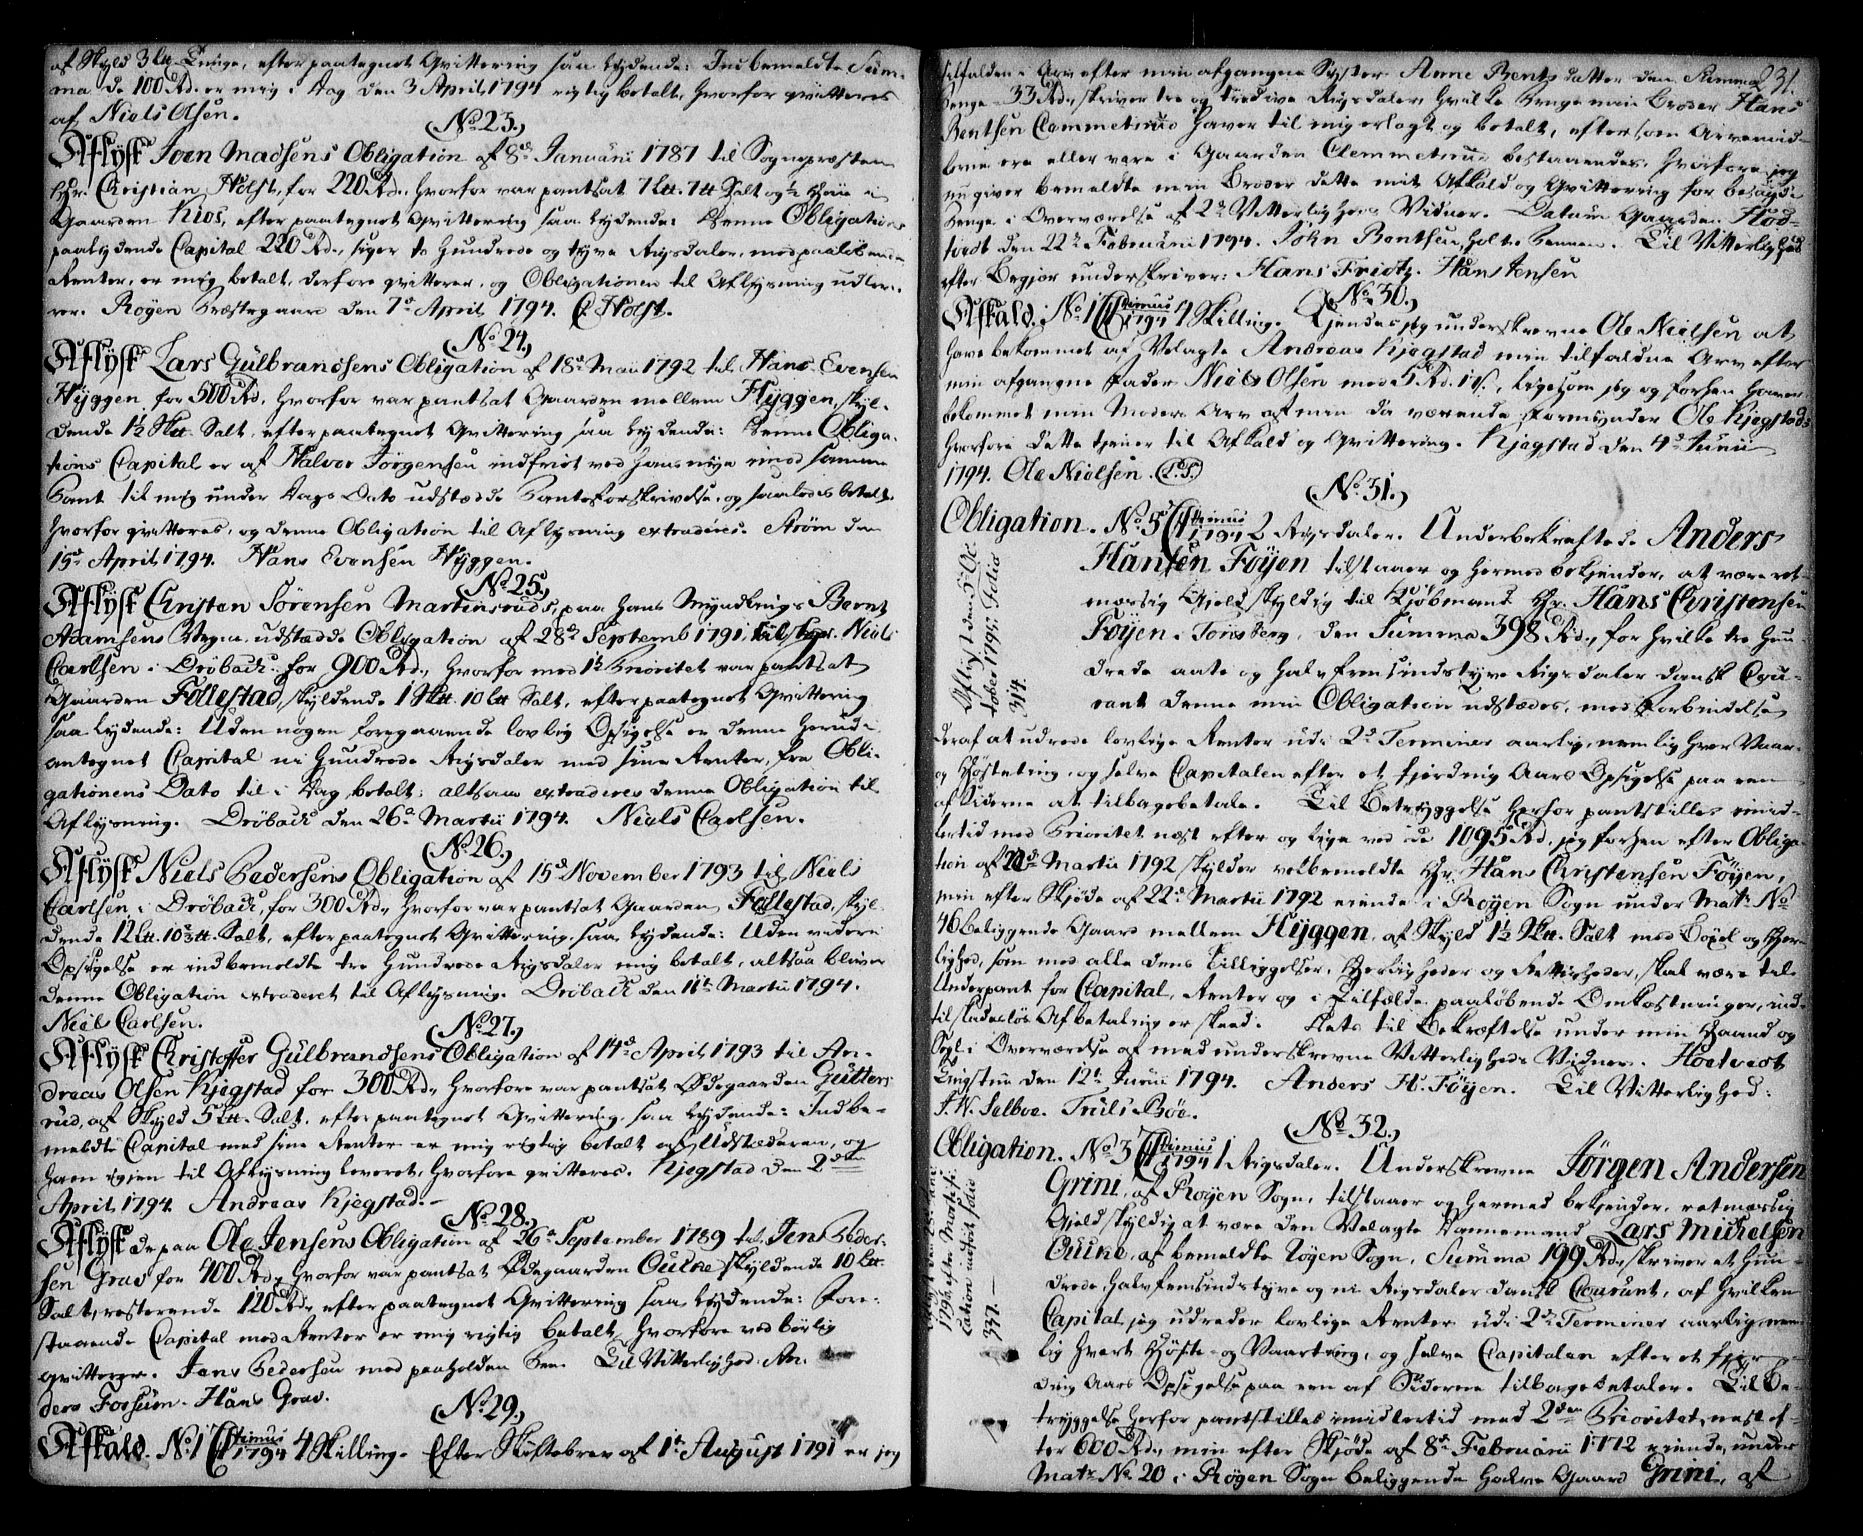 af Skyld 3 Lit. Tunge, efter paategnet Qvittering saa lydende: Indbemeldte Sum-
ma de 100 Rd. er mig i Dag den 3 April 1794 rigtig betalt, hvorfor qvitteres
af Niels Olsen.
No. 23.
Aflyst Joen Madsens Obligation af 8de Januarii 1787 til Sognepræsten
Hr. Christian Holst, for 220 Rd., hvorfor var pantsat 7 Lit. Salt og ½ Huud i
Gaarden Kios, efter paategnet Qvittering saa lydende: Denne Obligations
paalydende Capital 220 Rd., siger to Hundrede og tyve Rigsdaler, med paaløbende
Renter, er mig betalt, derfore qvitterer, og Obligationen til Aflysning udleve-
rer. Røgen Præstegaard den 7de April 1794. C. Holst.
No. 24.
Aflyst Lars Gulbrandsens Obligation af 18de Maii 1792 til Hans Evensen
Hyggen for 500 Rd., hvorfor var pantsat Gaarden mellem Hyggen, skyl-
dende 1½ Skt. Salt, efter paategnet Qvittering saa lydende: Denne Obliga-
tions Capital er af Halvor Jørgensen indfriet ved hans mig imod samme
Pant til mig under Dags Dato udstædde Panteforskrivelse, og saaledes betalt,
hvorfor qvitteres, og denne Obligation til Aflysning extraderes. Strøm den
15de April 1794. Hans Evensen Hyggen.
No. 25.
Aflyst Christen Sørensen Martinsruds, paa hans Myndlings Bernt
Adamsens Vegne, udstædde Obligation af 28de Septemb 1791, til Hr. Niels
Carlsen i Drøbach for 900 Rd., hvorfor med 1te Prioritet var pantsat
Gaarden Follestad, skyldende 1 Skt. 10 Lit. Salt, efter paategnet Qvittering
saa lydende: Uden nogen foregaaende lovlig Opsigelse er denne herudi
antegnet Capital ni Hundrede Rigsdaler med sine Renter, fra Obli-
gationens Dato til i Dag, betalt; altsaa extraderes denne Obligation til
Aflysning. Drøbach den 26de Martii 1794. Niels Carlsen.
No. 26.
Aflyst Niels Pedersens Obligation af 15de November 1793 til Niels
Carlsen i Drøbach, for 300 Rd., hvorfor var pantsat Gaarden Follestad, skyl-
dende 12 Lit. Salt, efter paategnet Qvittering, saa lydende: Uden videre
Opsigelse er indbemeldte tre Hundrede Rigsdaler mig betalt, altsaa bliver
denne Obligation extraderet til Aflysning. Drøbach den 11te Martii 1794.
Niels Carlsen.
No. 27.
Aflyst Christoffer Gulbrandsens Obligation af 14de April 1793 til An-
dreas Olsen Kjegstad for 300 Rd., hvorfore var pantsat Ødegaarden Gutters-
rud, af Skyld 5 Lit. Salt, efter paategnet Qvittering, saa lydende: Indbe-
meldte Capital med sine Renter er mig rigtig betalt af Udstæderen, og
ham igien til Aflysning leveret, hvorfore qvitteres. Kjegstad den 2den
April 1794. Andreas Kjegstad.
No. 28.
Aflyst de paa Ole Jensens Obligation af 26de September 1789 til Jens Peder-
sen Grav for 400 Rd., hvorfor var pantsat Ødegaarden Ouike, skyldende 10 Lit.
Salt, resterende 120 Rd., efter paategnet Qvittering saa lydende: Fore-
staaende Capital med Renter er mig rigtig betalt, hvorfore ved børlig
qvitterer. Jens Pedersen med paaholden Pen. Til Vitterlighed: An-
ders Forsum. Hans Grav.
No. 29.
Afkald. No. 1 Primus 1794 4 Skilling. Efter Skiftebrev af 1te August 1791 er jeg
231.
tilfalden i Arv efter min afgangne Syster Anne Bents datter den Summa
Penge 33 Rd., skriver tre og tredive Rigsdaler, hvilke Penge min Broder Hans
Bentsen Clemmetsrud haver til mig erlagt og betalt, eftersom Arvemid-
lerne ere eller vare i Gaarden Clemmetsrud bestaaende; hvorfore jeg
nu giver bemeldte min Broder dette mit Afkald og Qvittering for besagde
Penge i Overværelse af 2de Vitterligheds Vidner. Datum Gaarden Hod-
tvedt den 22de Februarii 1794. John Bentsen, holte Pennen. Til Vitterlighed
efter Begjær underskriver: Hans Fridtz. Hans Jensen
No. 30.
Afkald. No. 1 Primus 1794 4 Skilling. Kjendes jeg underskrevne Ole Nielsen at
have bekommet af Velagte Andreas Kjegstad min tilfaldne Arv efter
min afgangne Fader Niels Olsen med 5 Rd., ligesom jeg og forhen haver
bekommet min Moders Arv af min da værende Formynder Ole Kjegstad;
hvorfore dette tjener til Afkald og Qvittering. Kjegstad den 4de Junii
1794. Ole Nielsen. (L.S.)
No. 31.
Obligation. No. 5 Primus 1794 2 Rigsdaler. Underbekræftede Anders
Hansen Føyen tilstaaer og hermed bekjender, at være ret-
mæssig Gjeld skyldig til Kjøbmand Hr. Hans Christensen
Føyen i Tønsberg, den Summa 398 Rd., for hvilke tre Hun-
drede aatte og halvfemsindstyve Rigsdaler dansk Cou-
rant denne min Obligation udstædes, med Forbindelse
Aflyst den 5 Oc-
tober 1795. Folio
314.
deraf at udrede lovlige Renter udi 2de Terminer aarlig, nemlig hver Vaar-
og Høsteting, og selve Capitalen efter et fjerding Aars Opsigelse paa een
af Siderne at tilbagebetale. Til Betryggelse herfor pantstilles imid-
lertid med Prioritet næst efter og lige ved de 1095 Rd., jeg forhen efter Obliga-
tion af 22de Martii 1792 skylder velbemeldte Hr. Hans Christensen Føyen,
min efter Skjøde af 22de Martii 1792 eiende i Røyen Sogn under Matr. No.
46 beliggende Gaard mellem Hyggen, af Skyld 1½ Skt. Salt med Bøxel og Her-
lighed, som med alle dens Tilliggelser, Herligheder og Rettigheder, skal være til
Underpant for Capital, Renter og i Tilfælde paaløbende Omkostninger, ind-
til skadesløs Afbetaling er skeed. Dets til Bekræftelse under min Haand og
Segl i Overværelse af medunderskrevne Vitterligheds Vidner. Hoetvedt
Tingstue den 12te Junii 1794. Anders H. Føyen. Til Vitterlighed:
J. W. Selboe. Truls Bøe.
No. 32.
Obligation. No. 3 Primus 1794 1 Rigsdaler. Underskrevne Jørgen Andersen
Grini, af Røyen Sogn, tilstaaer og hermed bekjender, retmæssig
Gjeld skyldig at være den Velagte Dannemand Lars Michelsen
Ouike, af bemeldte Røyen Sogn, Summa 199 Rd., skriver et Hun-
drede, halvfemsindstyve og ni Rigsdaler dansk Courant, af hvilken
Capital jeg udreder lovlige Renter udi 2de Terminer aarlig, nem-
lig hvert Høste- og Vaarting, og selve Capitalen efter et fjer-
ding Aars Opsigelse paa een af Siderne tilbagebetaler. Til Be-
tryggelse herfor pantstilles imidlertid med 2den Prioritet, næst ef-
ter 600 Rd., min efter Skjøde af 8de Februarii 1772 eiende, under
Matr. No. 20 i Røgen Sogn beliggende halve Gaard Grini, af
1796 efter Mortifi-
cation indført folio
337.